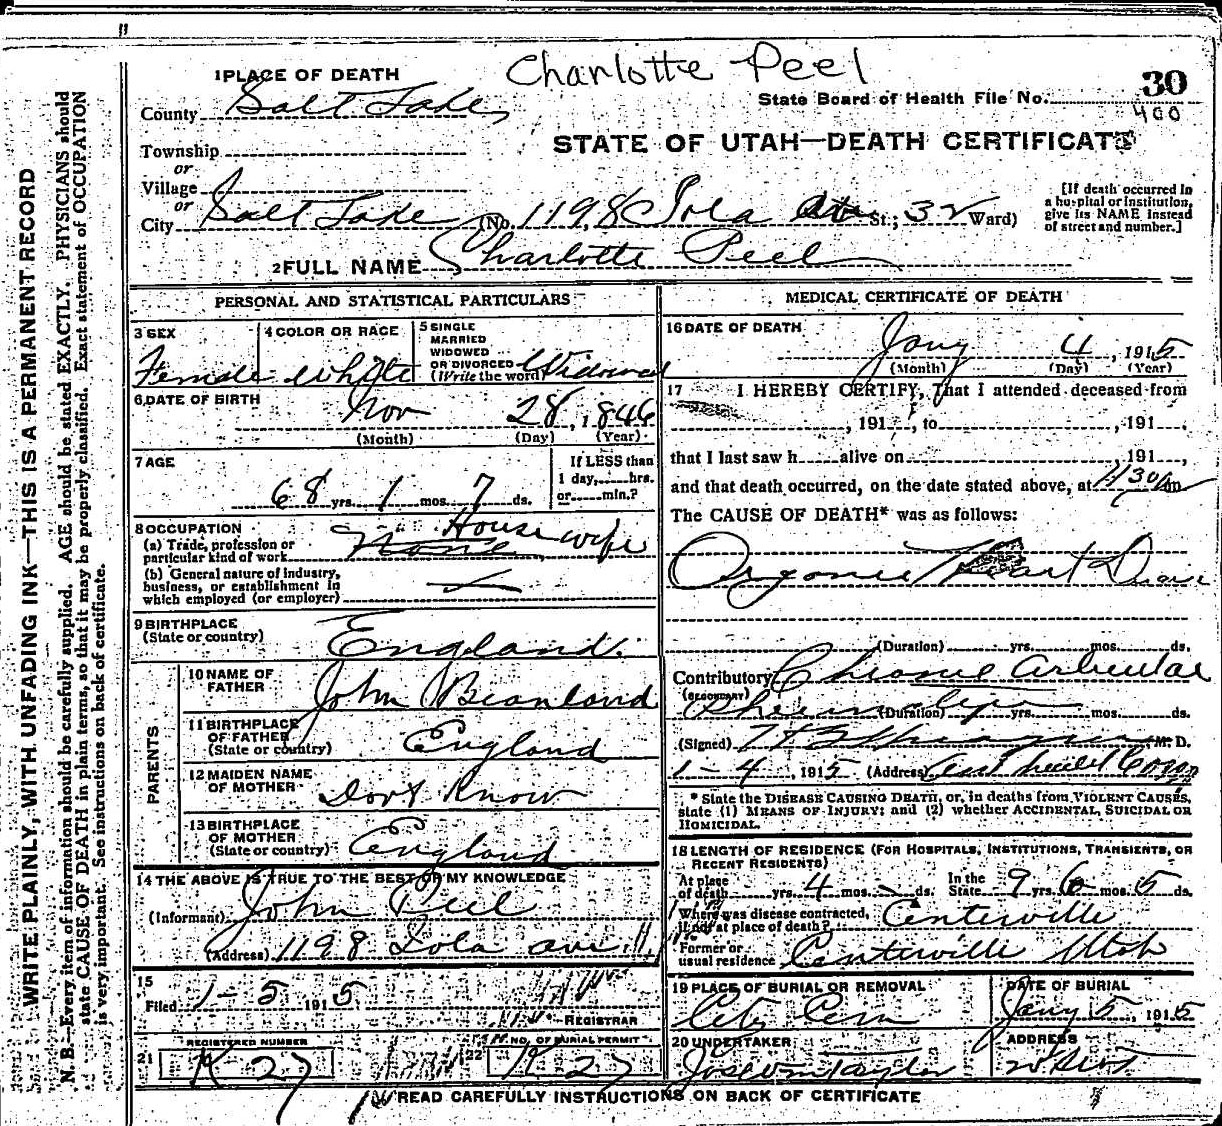 Charlotte Peel
30
400
State Board of Health File No.
STATE OF UTAH—DEATH CERTIFICATE
1 PLACE OF DEATH
County Salt Lake
Township
or
Village
or
City Salt Lake (No. 1198 Iola Ave St.; 32 Ward)
[If death occurred in
a hospital or institution,
give its NAME instead
of street and number.]
2 FULL NAME Charlotte Peel
WRITE PLAINLY, WITH UNFADING INK—THIS IS A PERMANENT RECORD
N. B.—Every item of information should be carefully supplied. AGE should be stated EXACTLY. PHYSICIANS should
state CAUSE OF DEATH in plain terms, so that it may be properly classified. Exact statement of OCCUPATION
is very important. See instructions on back of certificate.
PERSONAL AND STATISTICAL PARTICULARS
3 SEX
Female
4 COLOR OR RACE
White
5 SINGLE
MARRIED
WIDOWED
OR DIVORCED
(Write the word) Widowed
6 DATE OF BIRTH
Nov 28, 1846
(Month) (Day) (Year)
7 AGE
68 yrs. 1 mos. 7 ds.
If LESS than
1 day, hrs.
or min.?
8 OCCUPATION
(a) Trade, profession or
particular kind of work None House wife
(b) General nature of industry,
business, or establishment in
which employed (or employer)
9 BIRTHPLACE
(State or country) England.
PARENTS
10 NAME OF
FATHER John Beanland
11 BIRTHPLACE
OF FATHER
(State or country) England
12 MAIDEN NAME
OF MOTHER Dont Know
13 BIRTHPLACE
OF MOTHER
(State or country) England
14 THE ABOVE IS TRUE TO THE BEST OF MY KNOWLEDGE
(Informant) John Peel
(Address) 1198 Iola ave.
15
Filed 1-5 1915
REGISTRAR
21 REGISTERED NUMBER
K-27
22 NO. OF BURIAL PERMIT
K 27
MEDICAL CERTIFICATE OF DEATH
16 DATE OF DEATH
Jany 4, 1915
(Month) (Day) (Year)
17 I HEREBY CERTIFY, That I attended deceased from
, 191 , to , 191 ,
that I last saw h alive on , 191 ,
and that death occurred, on the date stated above, at m
The CAUSE OF DEATH* was as follows:
Organic Heart Disease
(Duration) yrs. mos. ds.
Contributory Chronic Articular
(SECONDARY)
(Duration) yrs. mos. ds.
(Signed) M. D.
1-4, 1915 (Address)
* State the DISEASE CAUSING DEATH, or, in deaths from VIOLENT CAUSES,
state (1) MEANS OF INJURY; and (2) whether ACCIDENTAL, SUICIDAL OR
HOMICIDAL.
18 LENGTH OF RESIDENCE (FOR HOSPITALS, INSTITUTIONS, TRANSIENTS, OR
RECENT RESIDENTS)
At place
of death yrs. 4 mos. ds. In the
State 9 yrs. 6 mos. 5 ds.
Where was disease contracted,
if not at place of death? Centerville
Former or
usual residence Centerville Utah
19 PLACE OF BURIAL OR REMOVAL
City Cem
DATE OF BURIAL
Jany 5, 1915
20 UNDERTAKER
Jos Wm Taylor
ADDRESS
READ CAREFULLY INSTRUCTIONS ON BACK OF CERTIFICATE